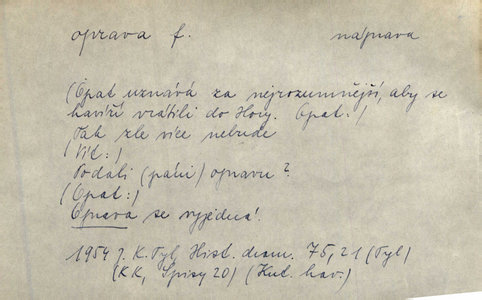 oprava f.
náprava
(Opat uznává za nejrozumnější, aby se
havíři vrátili do Hory. Opat:)
Tak zle více nebude
(Vít:)
Podali (páni) opravu?
(Opat:)
Oprava se vyjedná!
1954 J. K. Tyl, Hist. dram. 75,21 (Tyl)
(KK, Spisy 20) (Kut. hav.)